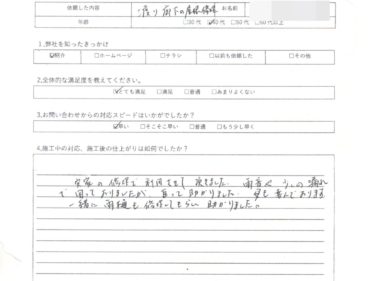 依頼した内容 渡り廊下の屋根修繕 お名前
年齢 □30代 ☑40代 □50代 □60代以上
1.弊社を知ったきっかけ
☑紹介 □ホームページ □チラシ □以前も依頼した □その他
2.全体的な満足度を教えてください。
☑とても満足 □満足 □普通 □あまりよくない
3.お問い合わせからの対応スピードはいかがでしたか?
☑早い □そこそこ早い □普通 □もう少し早く
4.施工中の対応、施工後の仕上がりは如何でしたか?
修理で 利用
で困っておりましたが、直って助かりました
一緒に雨樋も修理してもらい助かりました。